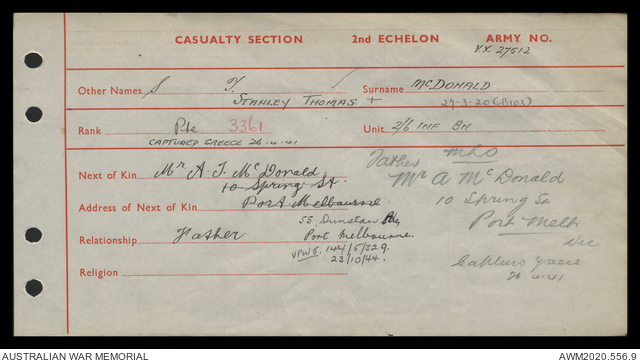 CASUALTY SECTION 2nd ECHELON ARMY NO.
V.X. 27512
Other Names S T. Surname McDONALD
STANLEY THOMAS + 27-3-20 (B103)
Rank Pte. 3361 Unit 2/6 INF BN
CAPTURED GREECE 26-4-41
Father MHO
Next of Kin Mr A. T. McDonald Mr A McDonald
10 Spring St. 10 Spring St
Address of Next of Kin Port Melbourne Port Melb
55 Dunstan Pde, Vic
Relationship Father Port Melbourne.
VPWE. 144/5/329. Capture Greece
23/10/44. 26-4-41
Religion
AUSTRALIAN WAR MEMORIAL AWM2020.556.9